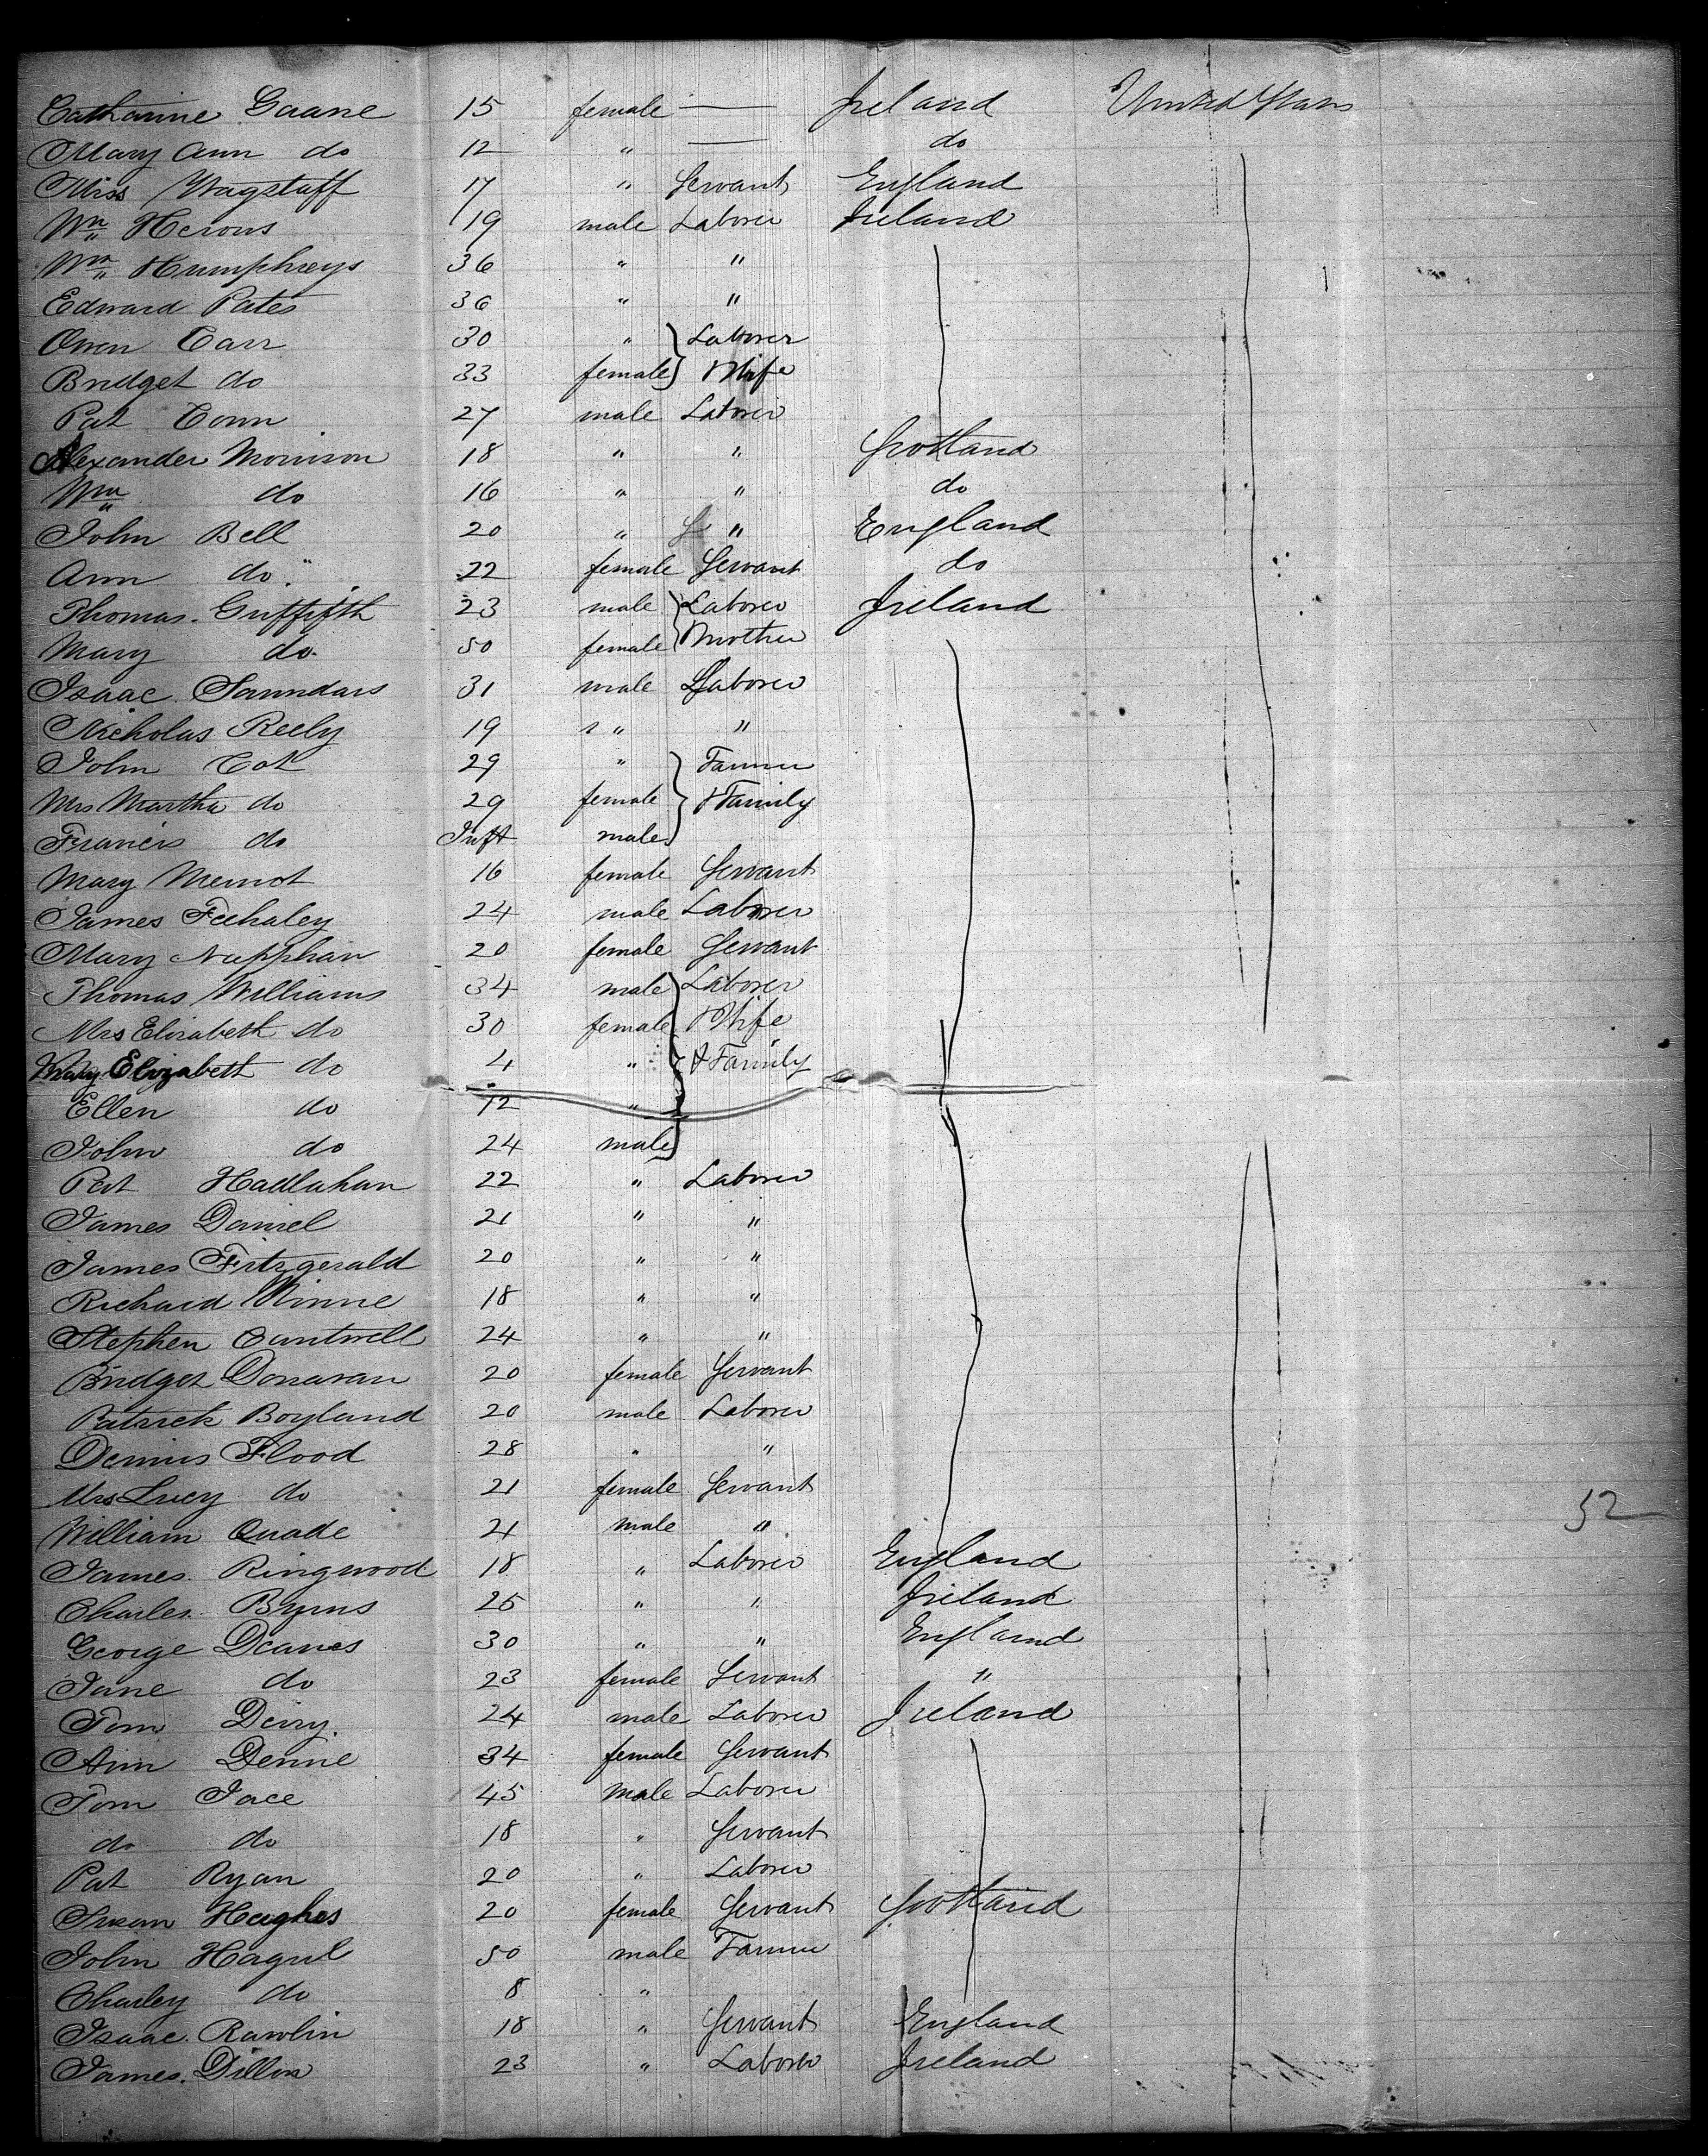 Catharine Gaane 15 female — Ireland United States
Mary Ann do 12 " — do
Miss Wagstaff 17 " Servant England
Wm Herons 19 male Laborer Ireland
Wm Humphreys 36 " "
Edward Pates 36 " "
Owen Carr 30 " Laborer
Bridget do 33 female & Wife
Pat Conn 27 male Laborer
Alexander Morrison 18 " " Scotland
Wm do 16 " " do
John Bell 20 " " England
Ann do " 22 female Servant do
Thomas Griffifth 23 male Laborer Ireland
Mary do 50 female Mother
Isaac Saunders 31 male Laborer
Nicholas Reely 19 " "
John Cot 29 " Farmer
Mrs Martha do 29 female & Family
Francis do Inft male
Mary 16 female Servant
James Feehaley 24 male Laborer
Mary 20 female Servant
Thomas Williams 34 male Laborer
Mrs Elizabeth do 30 female & Wife
Mary Elizabeth do 4 " & Family
Ellen do 12 "
John do 24 male
Pat Hallahan 22 " Laborer
James Daniel 21 " "
James Fitzgerald 20 " "
Richard Ninne 18 " "
Stephen Cantwell 24 " "
Bridget Donavan 20 female Servant
Patrick Boyland 20 male Laborer
Dennis Flood 28 " "
Mrs Lucy do 21 female Servant
William Quade 21 male " 52
James Ringwood 18 " Laborer England
Charles Byrns 25 " " Ireland
George Deanes 30 " " England
Jane do 23 female Servant "
Tom Deiry 24 male Laborer Ireland
Ann Denne 34 female Servant
Tom Jace 45 male Laborer
do do 18 " Servant
Pat Ryan 20 " Laborer
Susan Hughes 20 female Servant Scotland
John Hagul 50 male Farmer
Charley do 8 "
Isaac Rawlin 18 " Servant England
James Dillon 23 " Laborer Ireland